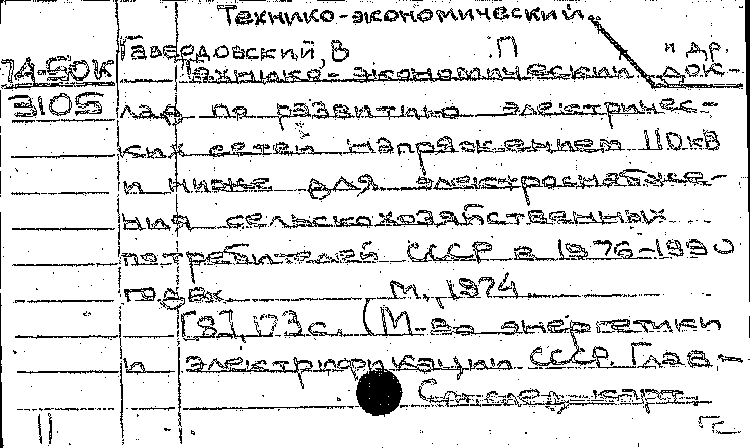 Технико-экономический
Гаведовский, В П и др.
74-50К Технико-экономический док-
3105 лад по развитию электричес-
ких сетей напряжением 110кВ
и ниже для электроснабже-
ния сельскохозяйственных
потребителей СССР в 1976-1990
годах М., 1974
[8], 173 с. (М-во энергетики
и электрификации СССР. Глав.-
См. след. карт.
11